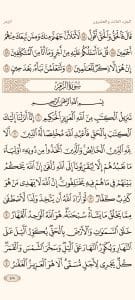 الجزء الثالث والعشرون الزمر
قَالَ فَٱلْحَقُّ وَٱلْحَقَّ أَقُولُ ٨٤ لَأَمْلَأَنَّ جَهَنَّمَ مِنكَ وَمِمَّن تَبِعَكَ مِنْهُمْ
أَجْمَعِينَ ٨٥ قُلْ مَآ أَسْـَٔلُكُمْ عَلَيْهِ مِنْ أَجْرٍ وَمَآ أَنَا۠ مِنَ ٱلْمُتَكَلِّفِينَ ٨٦
إِنْ هُوَ إِلَّا ذِكْرٌ لِّلْعَٰلَمِينَ ٨٧ وَلَتَعْلَمُنَّ نَبَأَهُۥ بَعْدَ حِينٍۭ ٨٨
سُورَةُ الزُّمَرِ
بِسْمِ ٱللَّهِ ٱلرَّحْمَٰنِ ٱلرَّحِيمِ
تَنزِيلُ ٱلْكِتَٰبِ مِنَ ٱللَّهِ ٱلْعَزِيزِ ٱلْحَكِيمِ ١ إِنَّآ أَنزَلْنَآ إِلَيْكَ
ٱلْكِتَٰبَ بِٱلْحَقِّ فَٱعْبُدِ ٱللَّهَ مُخْلِصًا لَّهُ ٱلدِّينَ ٢ أَلَا لِلَّهِ
ٱلدِّينُ ٱلْخَالِصُ وَٱلَّذِينَ ٱتَّخَذُوا۟ مِن دُونِهِۦٓ أَوْلِيَآءَ
مَا نَعْبُدُهُمْ إِلَّا لِيُقَرِّبُونَآ إِلَى ٱللَّهِ زُلْفَىٰٓ إِنَّ ٱللَّهَ يَحْكُمُ
بَيْنَهُمْ فِى مَا هُمْ فِيهِ يَخْتَلِفُونَ إِنَّ ٱللَّهَ لَا يَهْدِى مَنْ هُوَ
كَٰذِبٌ كَفَّارٌ ٣ لَّوْ أَرَادَ ٱللَّهُ أَن يَتَّخِذَ وَلَدًا لَّٱصْطَفَىٰ
مِمَّا يَخْلُقُ مَا يَشَآءُ سُبْحَٰنَهُۥ هُوَ ٱللَّهُ ٱلْوَٰحِدُ ٱلْقَهَّارُ ٤
خَلَقَ ٱلسَّمَٰوَٰتِ وَٱلْأَرْضَ بِٱلْحَقِّ يُكَوِّرُ ٱلَّيْلَ عَلَى
ٱلنَّهَارِ وَيُكَوِّرُ ٱلنَّهَارَ عَلَى ٱلَّيْلِ وَسَخَّرَ ٱلشَّمْسَ وَٱلْقَمَرَ
كُلٌّ يَجْرِى لِأَجَلٍ مُّسَمًّى أَلَا هُوَ ٱلْعَزِيزُ ٱلْغَفَّٰرُ ٥
٤٥٨